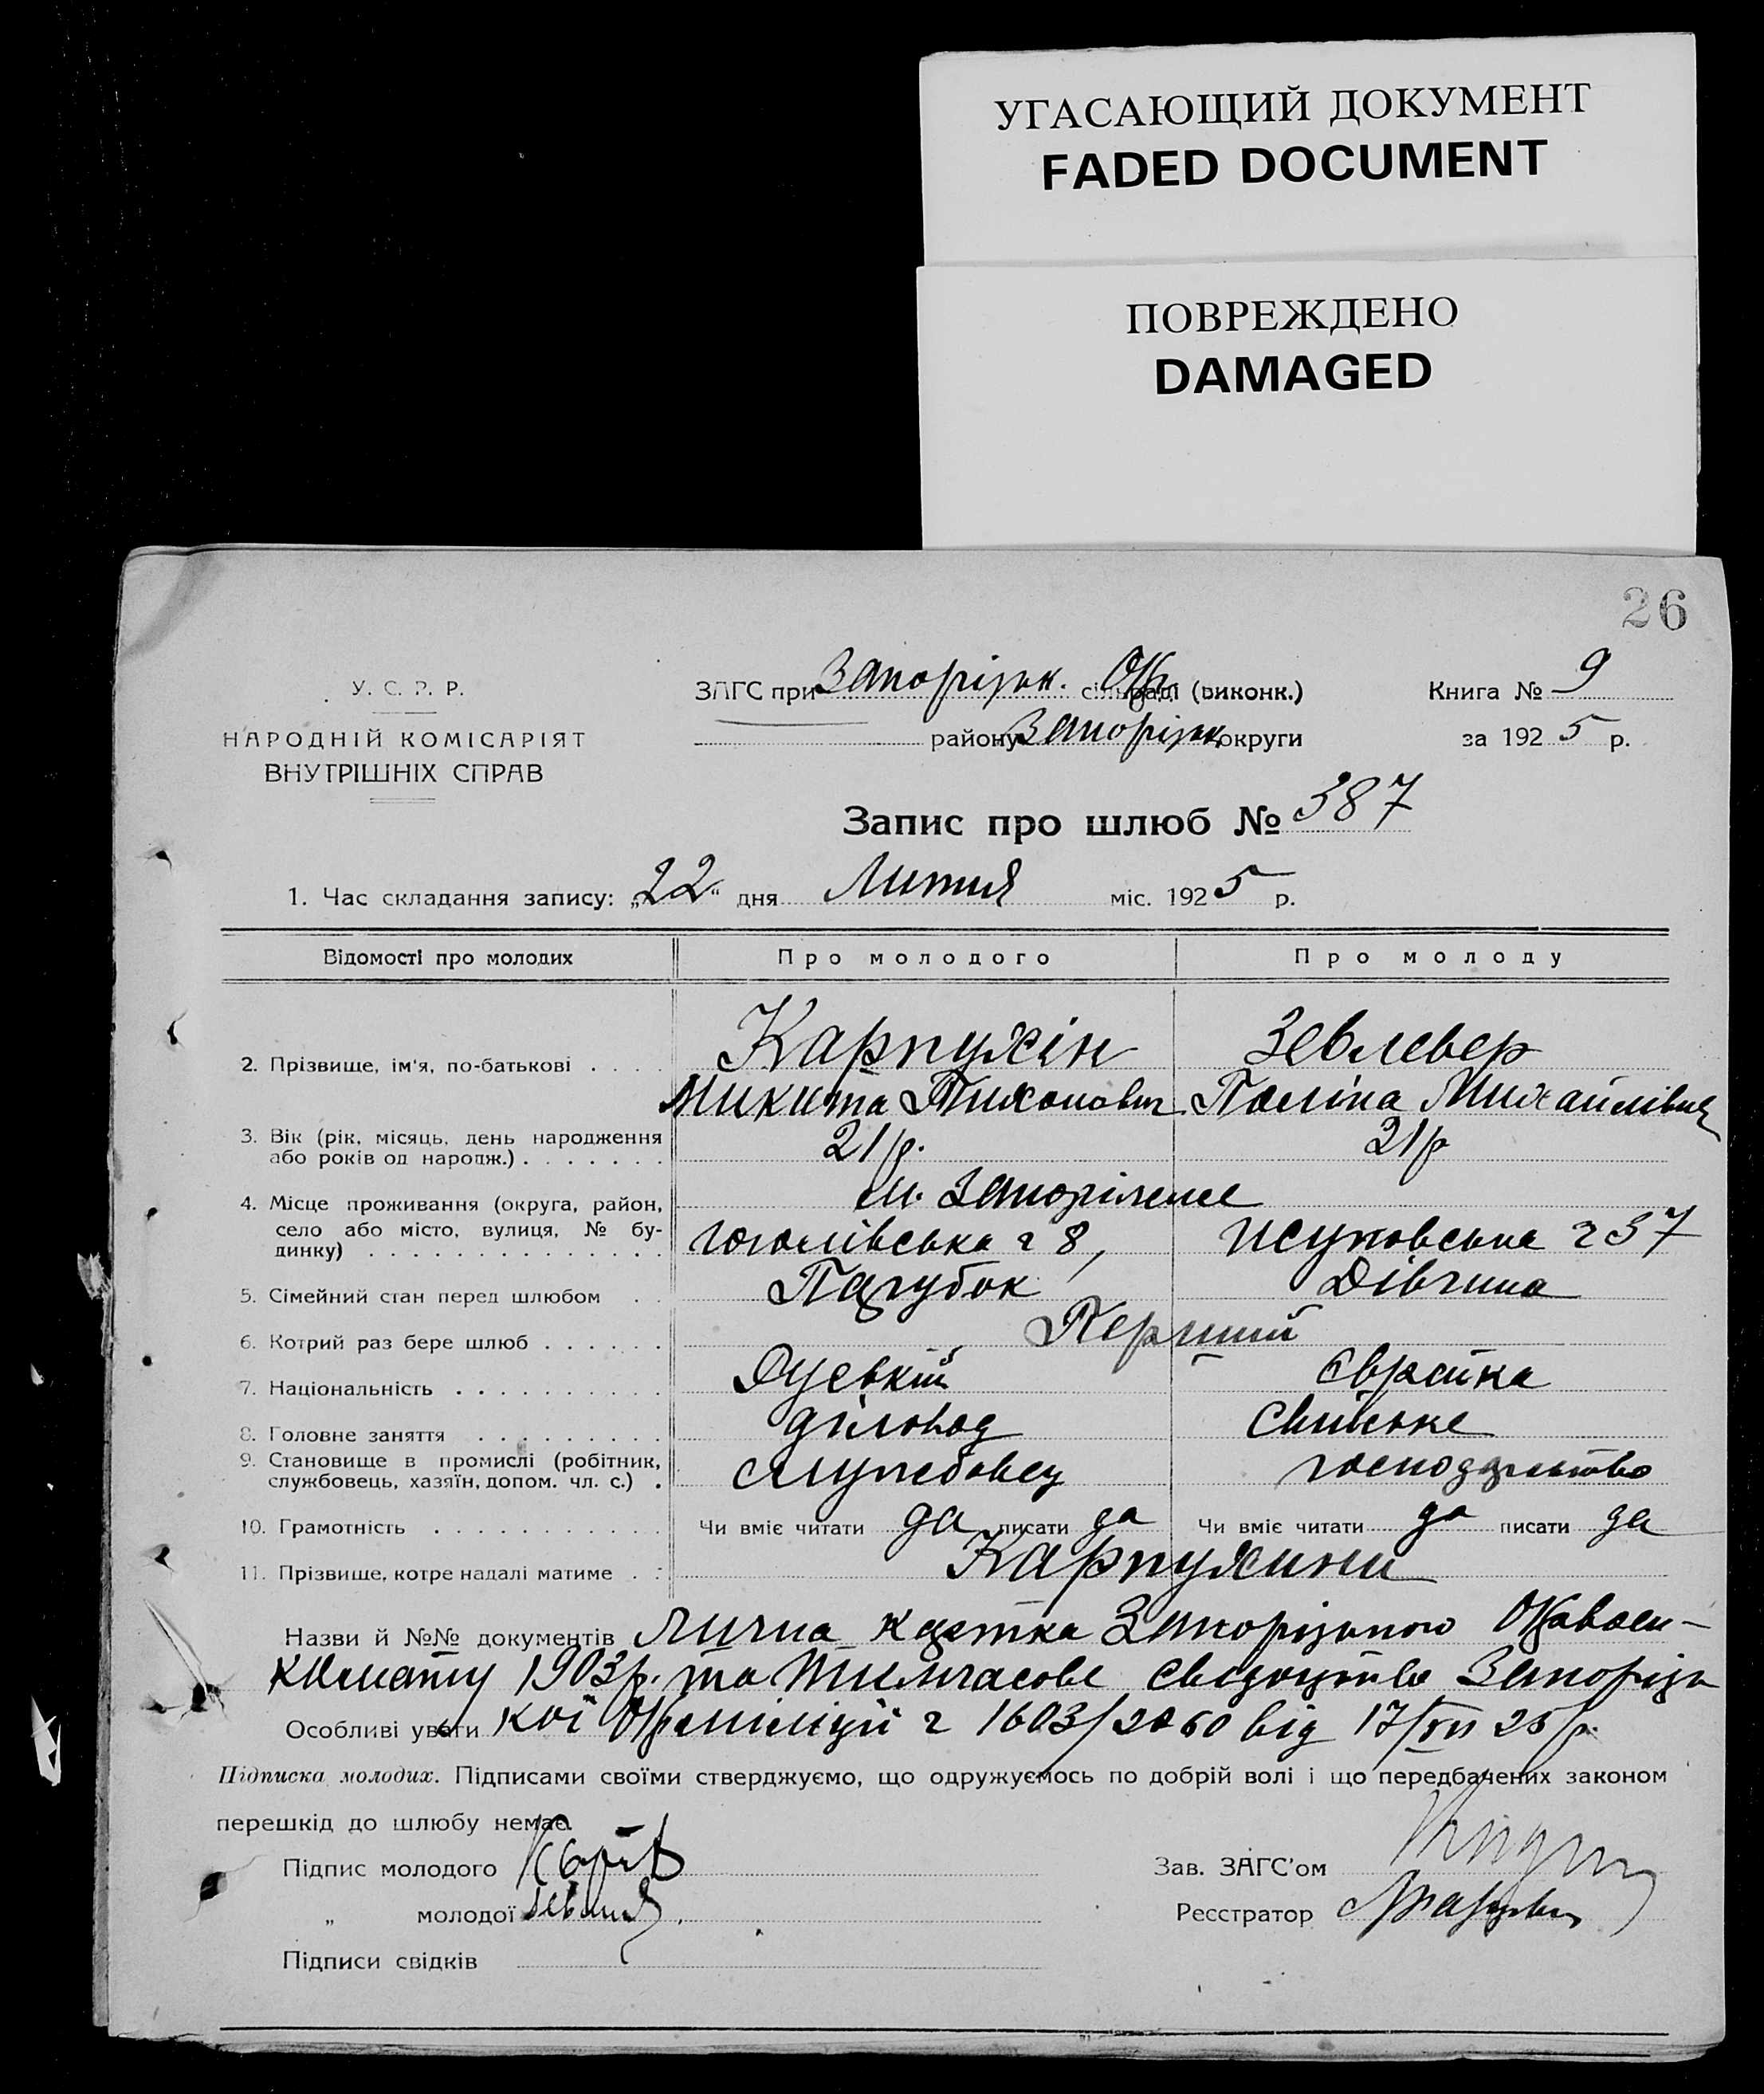 УГАСАЮЩИЙ ДОКУМЕНТ
FADED DOCUMENT
ПОВРЕЖДЕНО
DAMAGED
26
У. С. Р. Р.
НАРОДНІЙ КОМІСАРІЯТ
ВНУТРІШНІХ СПРАВ
ЗАГС при Запорізьк. Окр. сільраді (виконк.)
району Запорізьк. округи
Книга № 9
за 1925 р.
Запис про шлюб № 387
1. Час складання запису: „22“ дня Липня міс. 1925 р.
Відомості про молодих Про молодого Про молоду
2. Прізвище, ім'я, по-батькові Карпухін Зевлевер
Микита Тихонович Поліна Михайлівна
3. Вік (рік, місяць, день народження
або років од народж.) 21 р. 21 р
4. Місце проживання (округа, район,
село або місто, вулиця, № бу-
динку)
м. Запоріжжє
Гоголівська 8, 37
5. Сімейний стан перед шлюбом Парубок Дівчина
6. Котрий раз бере шлюб Перший
7. Національність Руській Єврейка
8. Головне заняття діловод Сільське
9. Становище в промислі (робітник,
службовець, хазяїн, допом. чл. с.) службовец господарство
10. Грамотність Чи вміє читати да писати да Чи вміє читати да писати да
11. Прізвище, котре надалі матиме Карпухини
Назви й №№ документів Лична картка Запорізького
1903 р. та тимчасове свідоцтво Запорізь
Особливі уваги кої Окрміліції 1603/2060 від 17/VII 25 р.
Підписка молодих. Підписами своїми стверджуємо, що одружуємось по добрій волі і що передбачених законом
перешкід до шлюбу немає.
Підпис молодого
„ молодої
Підписи свідків
Зав. ЗАГС'ом
Реєстратор